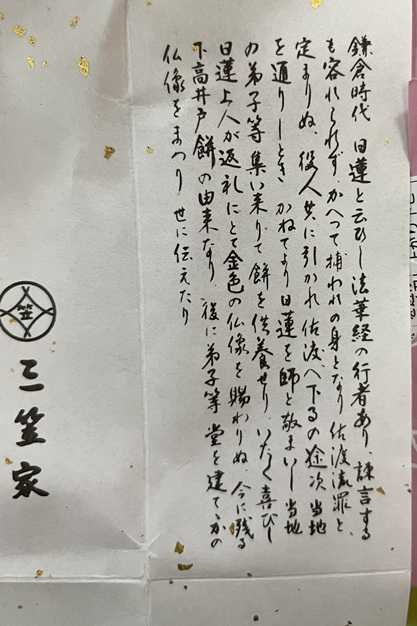 鎌倉時代 日蓮と云ひし法華経の行者あり、諌言する
も容れられず かへって捕われの身となり 佐渡流罪と、
定まりぬ、役人共に引かれ 佐渡へ下るの途次 当地
を通りしとき かねてより日蓮を師と敬まいし当地
の弟子等 集い来りて 餅を供養せり、いたく喜びし
日蓮上人が返礼にとて金色の仏像を賜わりぬ 今に残る
下高井戸 餅の由来なり、後に弟子等 堂を建て かの
仏像をまつり 世に伝えたり
笠
三笠家